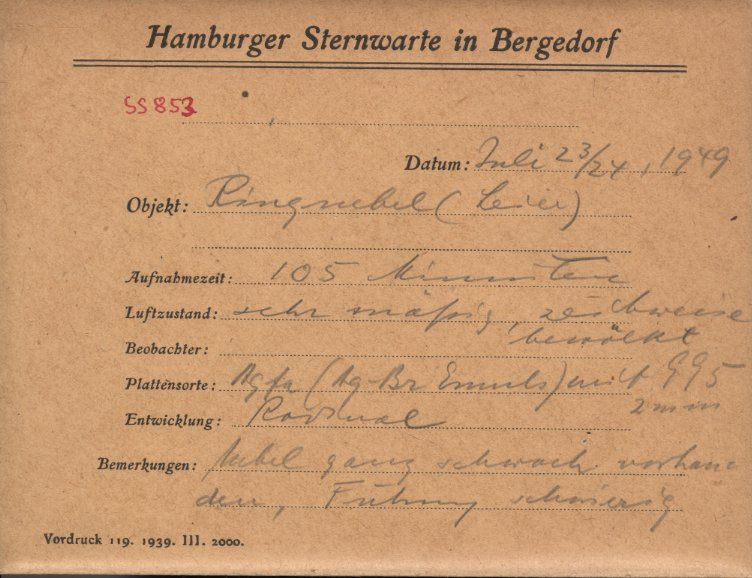 Hamburger Sternwarte in Bergedorf
SS853
Datum: Juli 23/24, 1949
Objekt: Ringnebel (Leier)
Aufnahmezeit: 105 Minuten
Luftzustand: sehr mäßig, zeitweise
bewölkt
Beobachter:
Plattensorte: Agfa (Ag-Br Emuls) mit GG5
2 mm
Entwicklung: Rodinal
Bemerkungen: Nebel ganz schwach vorhan
den, Führung schwierig
Vordruck 119. 1939. III. 2000.